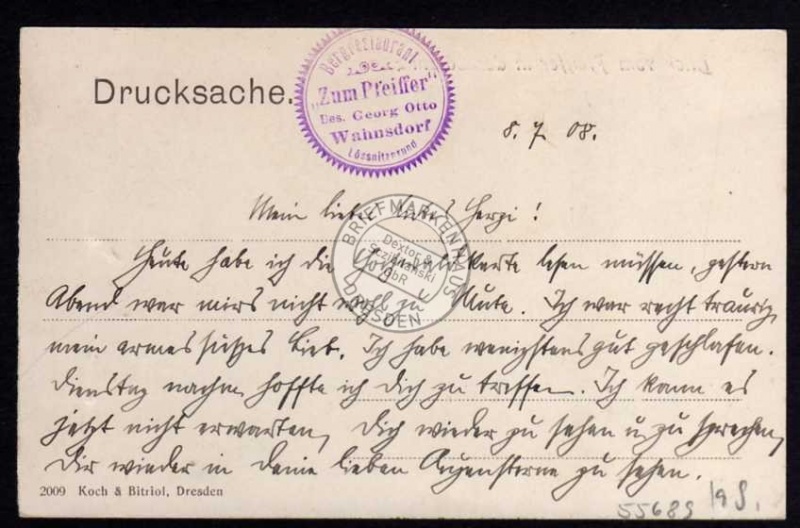 Drucksache.
Bergrestaurant
„Zum Pfeiffer“
Bes. Georg Otto
Wahnsdorf
Lössnitzgrund
8. 7. 08.
Mein liebes liebes Herzi!
Heute habe ich die lesen müssen, gestern
Abend war mirs nicht wohl zu Mute. Ich war recht traurig,
mein armes süßes Lieb. Ich habe wenigstens gut geschlafen.
Dienstag nachm hoffte ich Dich zu treffen. Ich kann es
jetzt nicht erwarten, Dich wieder zu sehen u. zu sprechen,
Dir wieder in Deine lieben Augensterne zu sehen.
BRIEFMARKENHAUS
Dextor &
Sezimanski
GbR
DRESDEN
2009 Koch & Bitriol, Dresden
55689